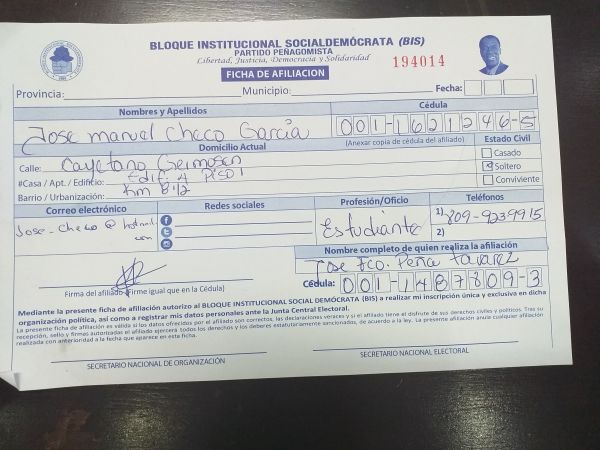 BLOQUE INSTITUCIONAL SOCIALDEMÓCRATA (BIS)
PARTIDO PEÑAGOMISTA
Libertad, Justicia, Democracia y Solidaridad
FICHA DE AFILIACION
194014
Provincia: Municipio: Fecha:
Nombres y Apellidos Cédula
Jose manuel Checo Garcia 001-1621246-5
Domicilio Actual (Anexar copia de cédula del afiliado) Estado Civil
Calle: Cayetano Germosen Casado
#Casa / Apt. / Edificio: Edif. 4 Piso 1 Soltero
Barrio / Urbanización: Km 8 1/2 Conviviente
Correo electrónico Redes sociales Profesión/Oficio Teléfonos
Jose-checo@hotmil.com Estudiante 1) 809-9239915
2)
Nombre completo de quien realiza la afiliación
Jose Fco. Peña Tavarez
Firma del afiliado (Firme igual que en la Cédula) Cédula: 001-1487809-3
Mediante la presente ficha de afiliación autorizo al BLOQUE INSTITUCIONAL SOCIAL DEMÓCRATA (BIS) a realizar mi inscripción única y exclusiva en dicha
organización política, así como a registrar mis datos personales ante la Junta Central Electoral.
La presente ficha de afiliación es válida si los datos ofrecidos por el afiliado son correctos, las declaraciones veraces y si el afiliado tiene el disfrute de sus derechos civiles y políticos. Tras su
recepción, sello y firmas autorizadas el afiliado ejercerá todos los derechos y los deberes estatutariamente sancionados, de acuerdo a la ley. La presente afiliación anula cualquier afiliación
realizada con anterioridad a la fecha que aparece en esta ficha.
SECRETARIO NACIONAL DE ORGANIZACIÓN SECRETARIO NACIONAL ELECTORAL